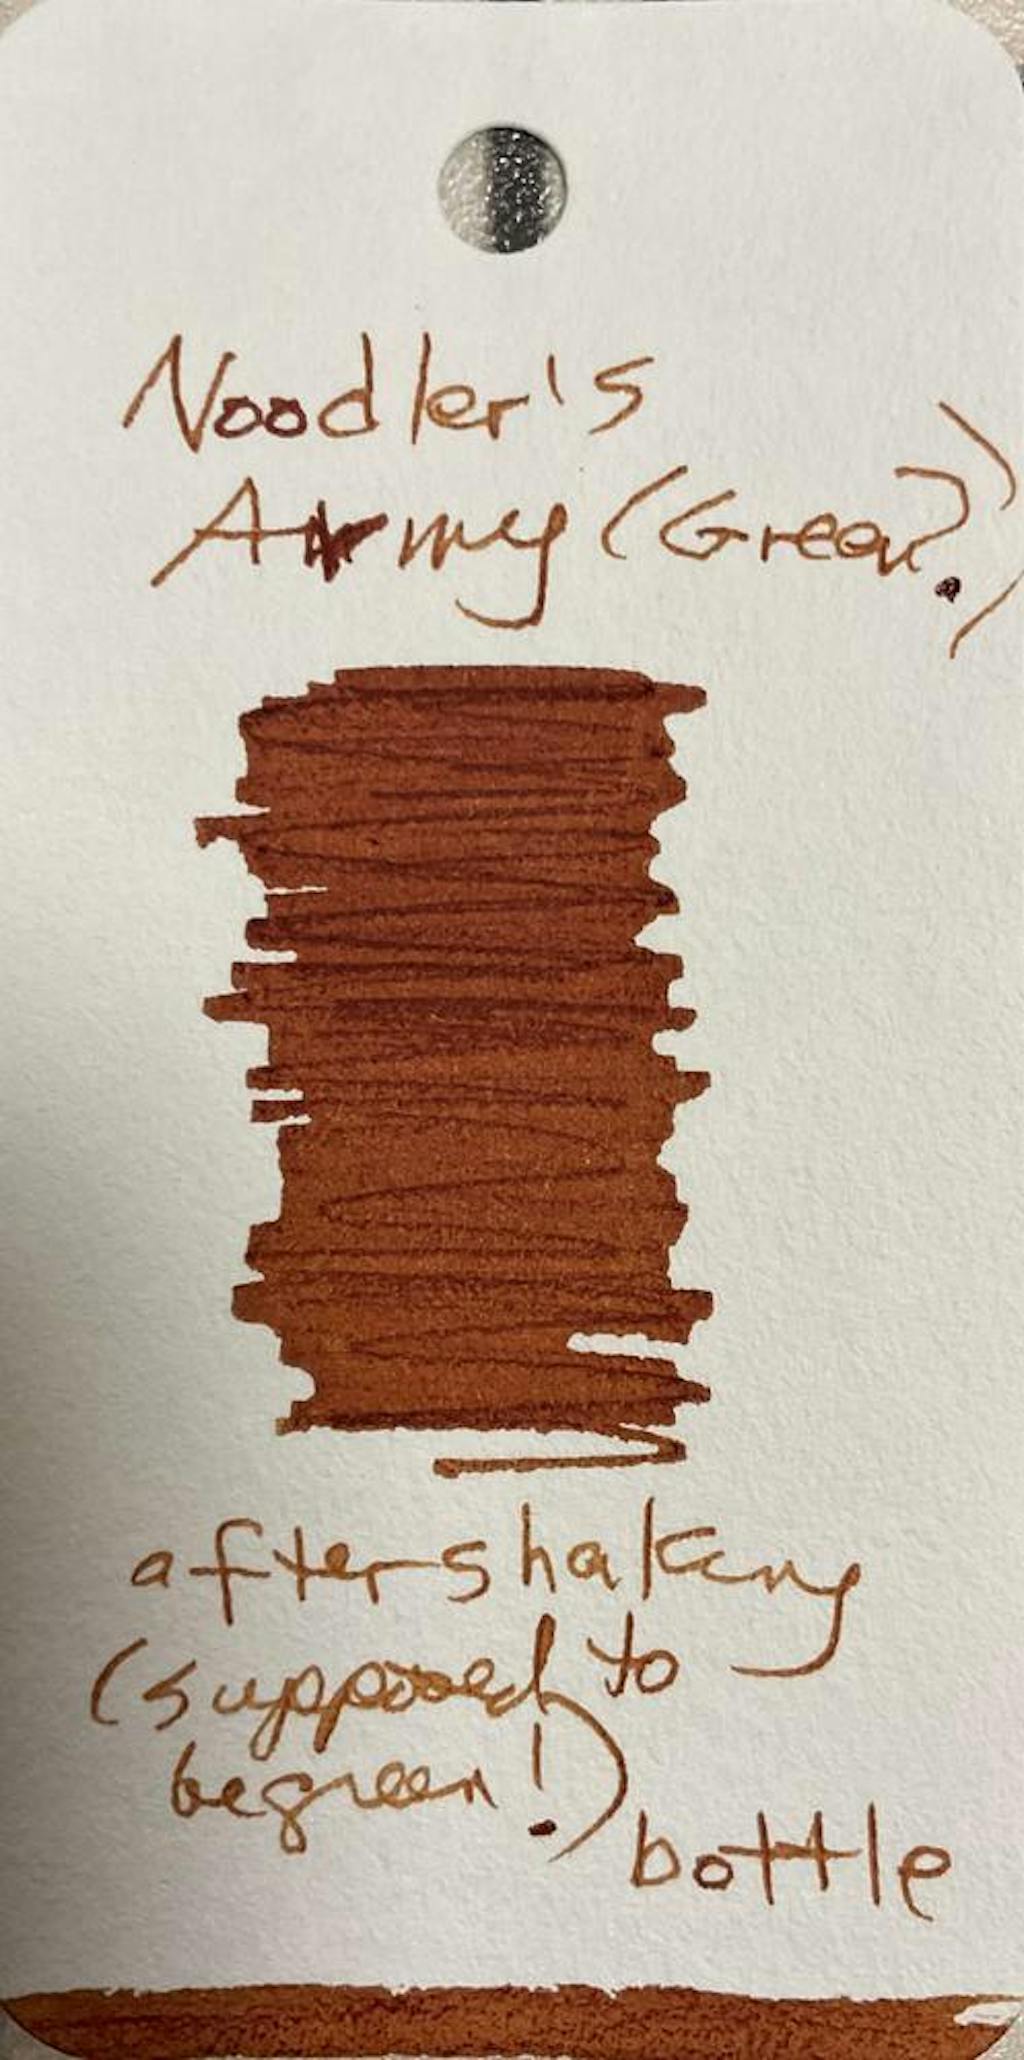 Noodler's
Army (Green?)
after shaking
(supposed to
be green!)
bottle